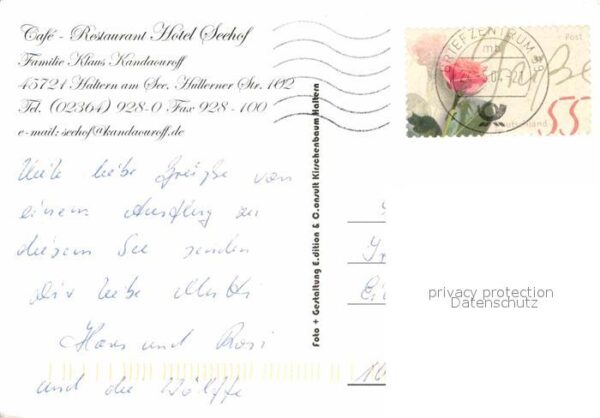 Café - Restaurant Hotel Seehof
Familie Klaus Kandaouroff
45721 Haltern am See, Hullerner Str. 102
Tel. (02364) 928-0 Fax 928-100
e-mail: seehof@kandaouroff.de
Viele liebe Grüße von
einem Ausflug zu
diesem See senden
Dir liebe
Hans und Rosi
und die Wölffe
Foto + Gestaltung E.dition & C.onsult Kirschenbaum Haltern
BRIEFZENTRUM
mb
Post
Deutschland
55
privacy protection
Datenschutz